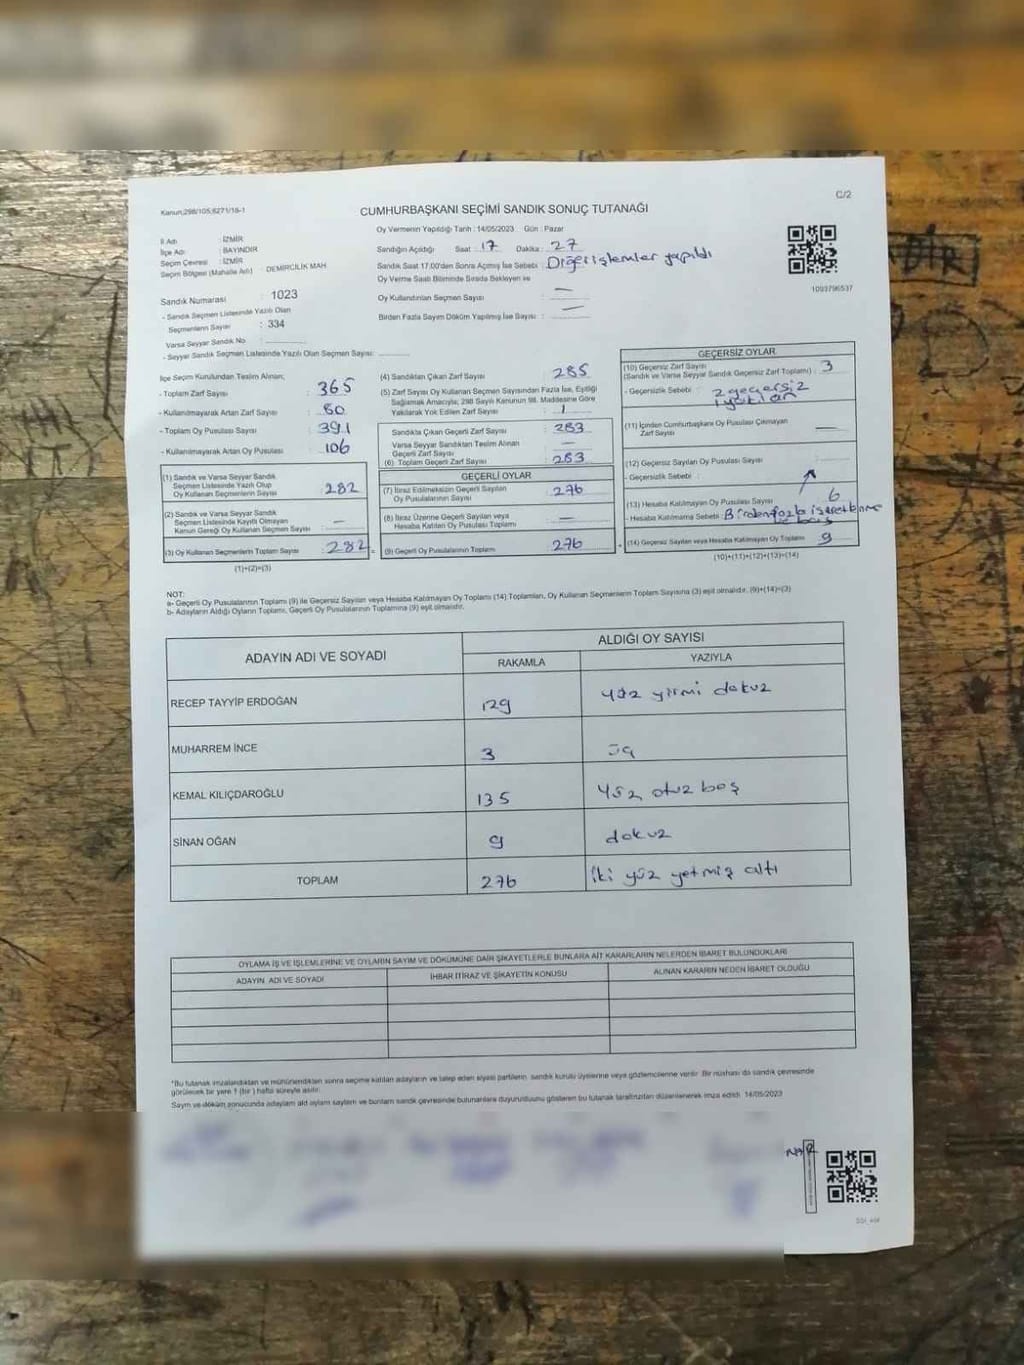 Kanun;298/105;6271/18-1
C/2
CUMHURBAŞKANI SEÇİMİ SANDIK SONUÇ TUTANAĞI
İl Adı : İZMİR
İlçe Adı : BAYINDIR
Seçim Çevresi : İZMİR
Seçim Bölgesi (Mahalle Adı) : DEMİRCİLİK MAH
Sandık Numarası : 1023
- Sandık Seçmen Listesinde Yazılı Olan
Seçmenlerin Sayısı : 334
Varsa Seyyar Sandık No :
- Seyyar Sandık Seçmen Listesinde Yazılı Olan Seçmen Sayısı:
Oy Vermenin Yapıldığı Tarih : 14/05/2023 Gün : Pazar
Sandığın Açıldığı Saat : 17 Dakika : 27
Sandık Saat 17:00'den Sonra Açılmış İse Sebebi : Diğer işlemler yapıldı
Oy Verme Saati Bitiminde Sırada Bekleyen ve
Oy Kullandırılan Seçmen Sayısı : —
Birden Fazla Sayım Döküm Yapılmış İse Sayısı : —
1093796537
İlçe Seçim Kurulundan Teslim Alınan;
- Toplam Zarf Sayısı : 365
- Kullanılmayarak Artan Zarf Sayısı : 80
- Toplam Oy Pusulası Sayısı : 391
- Kullanılmayarak Artan Oy Pusulası : 106
(1) Sandık ve Varsa Seyyar Sandık
Seçmen Listesinde Yazılı Olup
Oy Kullanan Seçmenlerin Sayısı : 282
(2) Sandık ve Varsa Seyyar Sandık
Seçmen Listesinde Kayıtlı Olmayan
Kanun Gereği Oy Kullanan Seçmen Sayısı : —
(3) Oy Kullanan Seçmenlerin Toplam Sayısı : 282
(1)+(2)=(3)
(4) Sandıktan Çıkan Zarf Sayısı : 285
(5) Zarf Sayısı Oy Kullanan Seçmen Sayısından Fazla İse, Eşitliği
Sağlamak Amacıyla; 298 Sayılı Kanunun 98. Maddesine Göre
Yakılarak Yok Edilen Zarf Sayısı : 1
Sandıkta Çıkan Geçerli Zarf Sayısı : 283
Varsa Seyyar Sandıktan Teslim Alınan
Geçerli Zarf Sayısı : —
(6) Toplam Geçerli Zarf Sayısı : 283
GEÇERLİ OYLAR
(7) İtiraz Edilmeksizin Geçerli Sayılan
Oy Pusulalarının Sayısı : 276
(8) İtiraz Üzerine Geçerli Sayılan veya
Hesaba Katılan Oy Pusulası Toplamı : —
(9) Geçerli Oy Pusulalarının Toplamı : 276
GEÇERSİZ OYLAR
(10) Geçersiz Zarf Sayısı
(Sandık ve Varsa Seyyar Sandık Geçersiz Zarf Toplamı) : 3
- Geçersizlik Sebebi : 2 geçersiz
1 yakılan
(11) İçinden Cumhurbaşkanı Oy Pusulası Çıkmayan
Zarf Sayısı : —
(12) Geçersiz Sayılan Oy Pusulası Sayısı :
- Geçersizlik Sebebi :
(13) Hesaba Katılmayan Oy Pusulası Sayısı : 6
- Hesaba Katılmama Sebebi : Birden fazla işaretleme
ve boş
(14) Geçersiz Sayılan veya Hesaba Katılmayan Oy Toplamı : 9
(10)+(11)+(12)+(13)=(14)
NOT:
a- Geçerli Oy Pusulalarının Toplamı (9) ile Geçersiz Sayılan veya Hesaba Katılmayan Oy Toplamı (14) Toplamları, Oy Kullanan Seçmenlerin Toplam Sayısına (3) eşit olmalıdır. (9)+(14)=(3)
b- Adayların Aldığı Oyların Toplamı, Geçerli Oy Pusulalarının Toplamına (9) eşit olmalıdır.
ADAYIN ADI VE SOYADI ALDIĞI OY SAYISI
RAKAMLA YAZIYLA
RECEP TAYYİP ERDOĞAN 129 yüz yirmi dokuz
MUHARREM İNCE 3 üç
KEMAL KILIÇDAROĞLU 135 yüz otuz beş
SİNAN OĞAN 9 dokuz
TOPLAM 276 iki yüz yetmiş altı
OYLAMA İŞ VE İŞLEMLERİNE VE OYLARIN SAYIM VE DÖKÜMÜNE DAİR ŞİKAYETLERLE BUNLARA AİT KARARLARIN NELERDEN İBARET BULUNDUKLARI
ADAYIN ADI VE SOYADI İHBAR İTİRAZ VE ŞİKAYETİN KONUSU ALINAN KARARIN NEDEN İBARET OLDUĞU
*Bu tutanak imzalandıktan ve mühürlendikten sonra seçime katılan adayların ve talep eden siyasi partilerin sandık kurulu üyelerine veya gözlemcilerine verilir. Bir nüshası da sandık çevresinde
görülecek bir yere 1 (bir) hafta süreyle asılır.
Sayım ve döküm sonucunda adayların